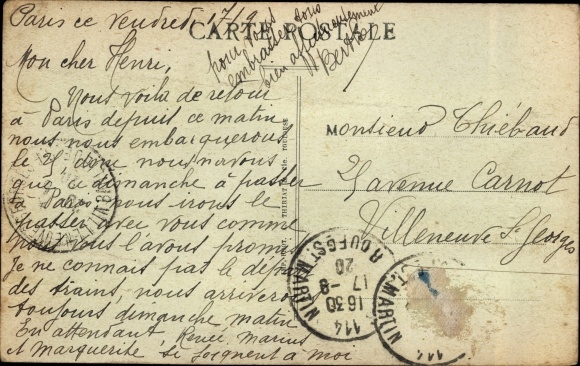 Paris ce Vendredi 17/9
CARTE POSTALE
Mon cher Henri,
Nous voilà de retour
à Paris depuis ce matin
nous nous embarquerons
le 25 donc nous n'avons
que ce dimanche à passer
à Paris nous irons le
passer avec vous comme
nous vous l'avons promis
Je ne connais pas le départ
des trains, nous arriverons
toujours dimanche matin
En attendant, Renée, Marius
et Marguerite se joignent à moi
pour vous
embrasser tous
bien affectueusement
Berthe
Monsieur Thiébaud
25 avenue Carnot
Villeneuve St Georges
114
1630
17-9
20
R. DU FG ST MARTIN
ST MARTIN
114